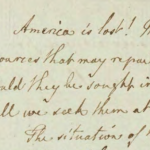 America is lost!
sources that may repa
uld they be sought in
ll we seek them at
The situations of